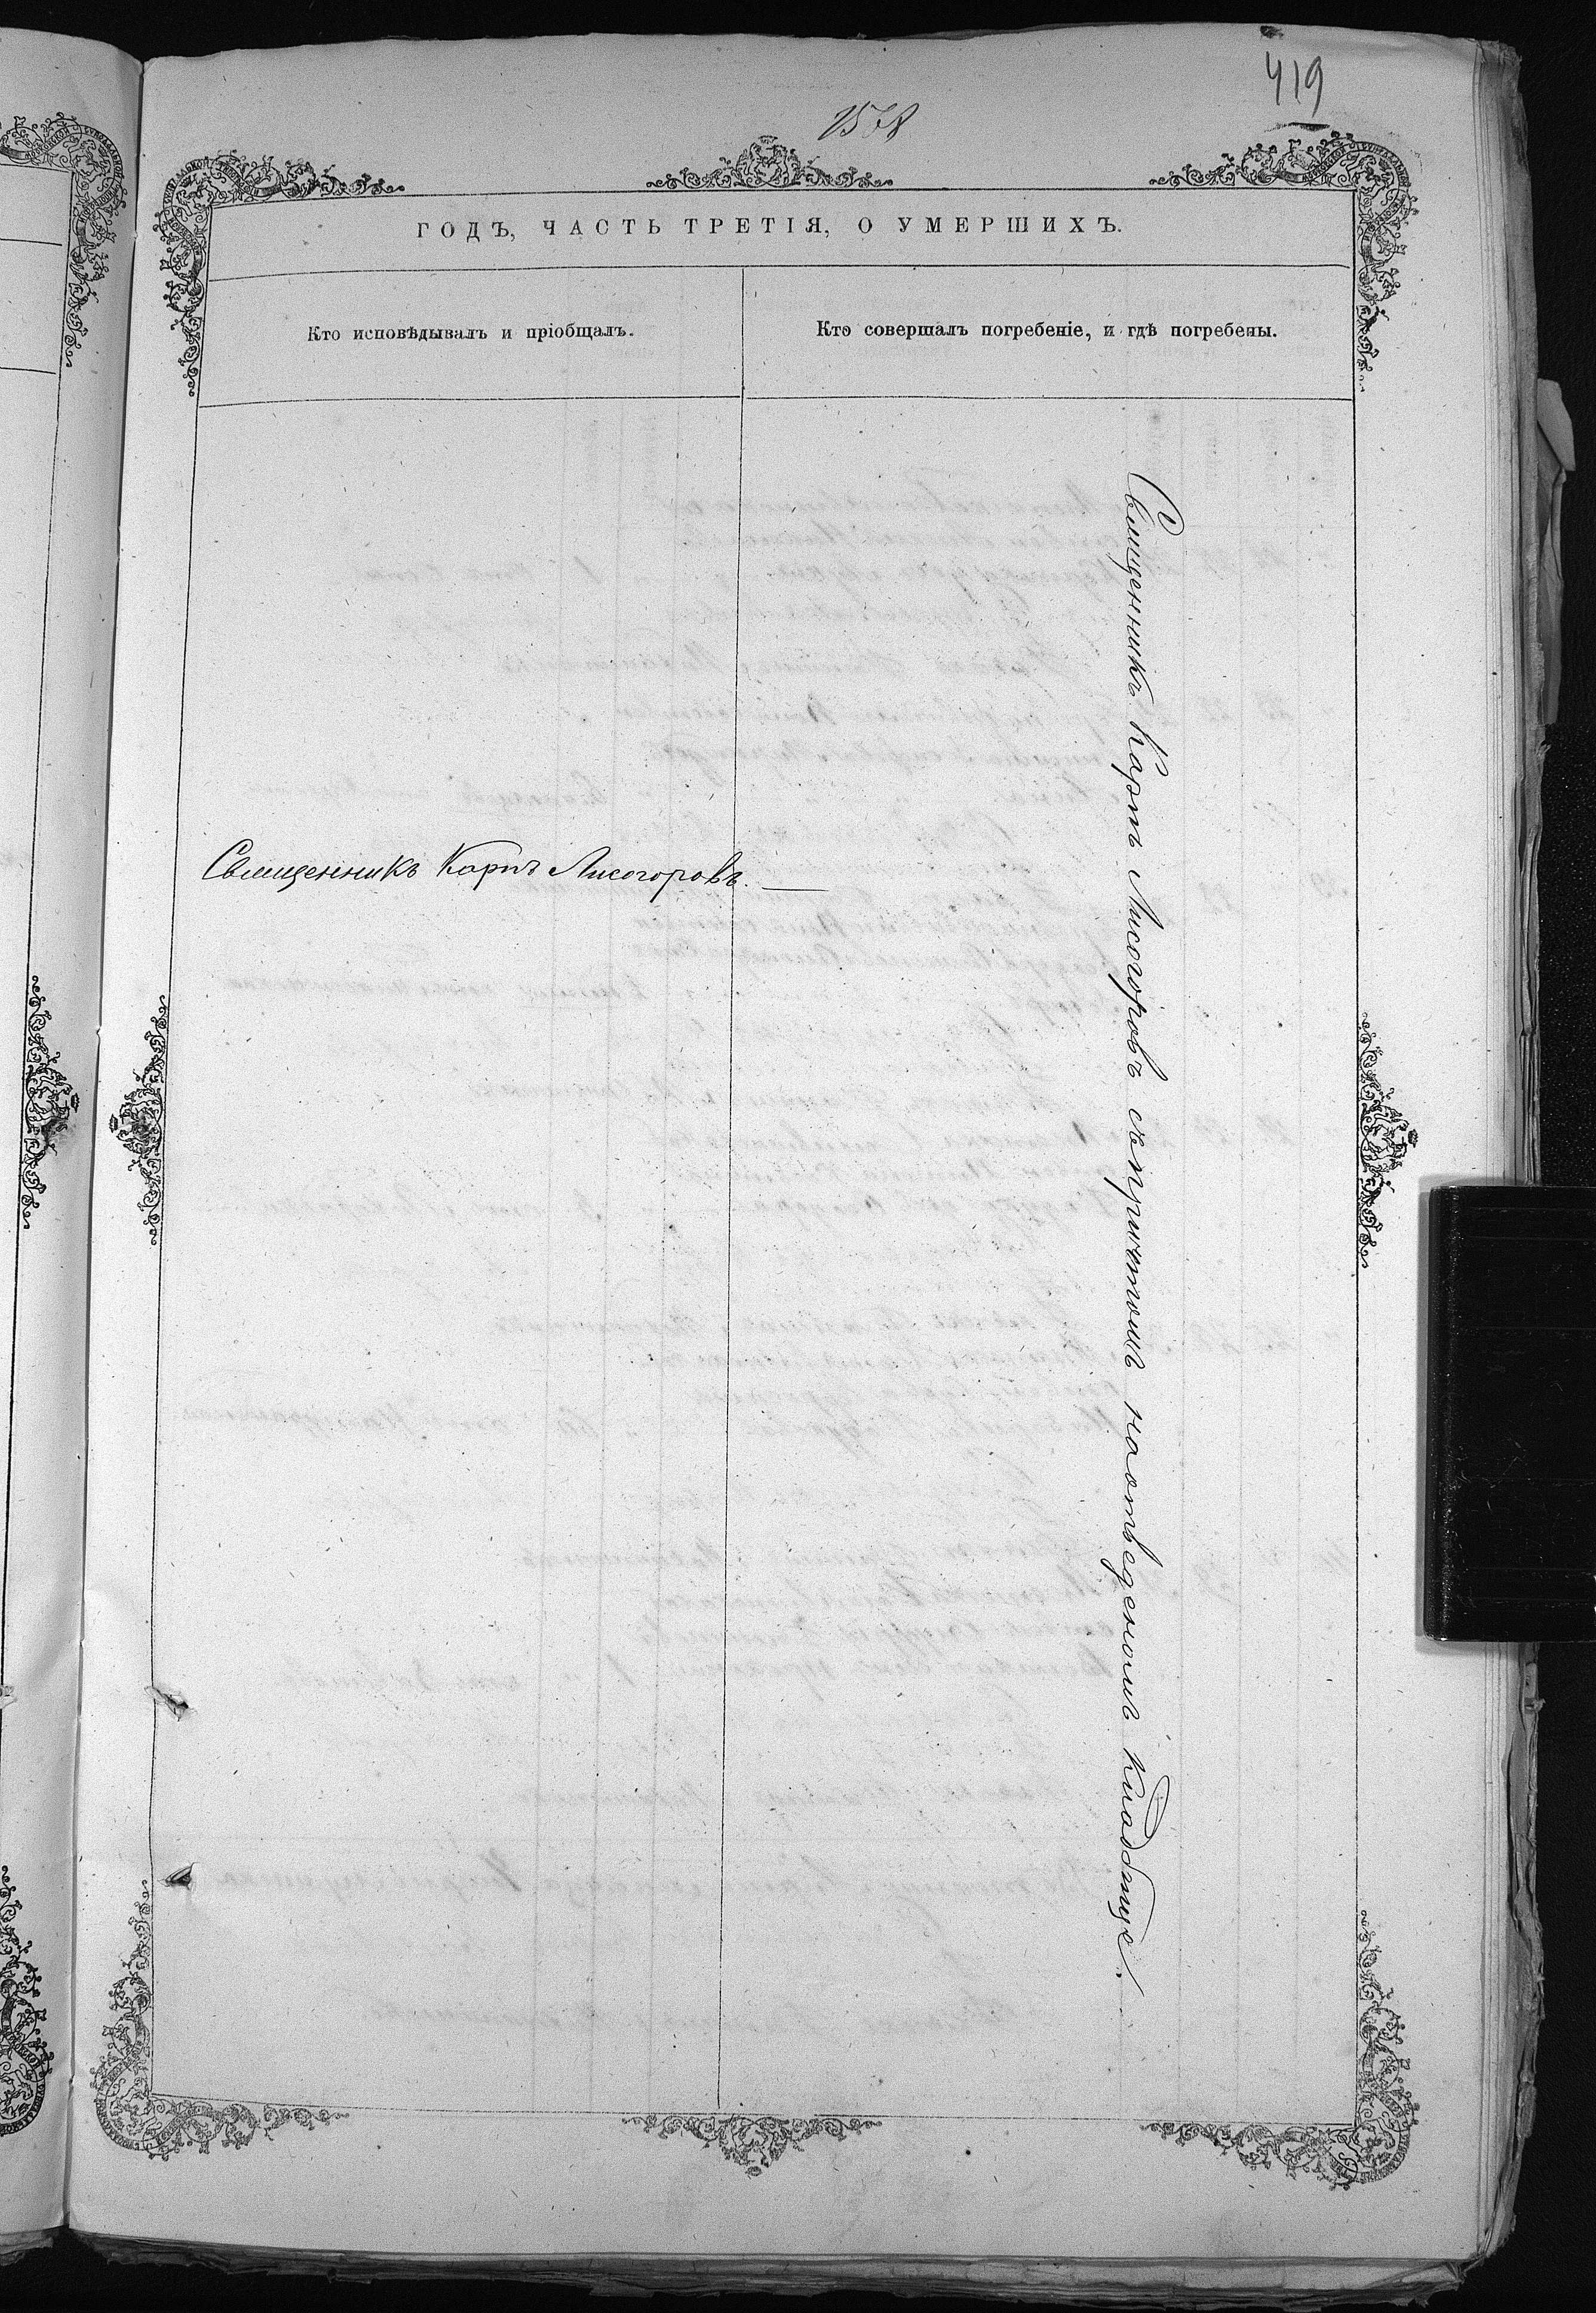 419
1578
ГОДЪ, ЧАСТЬ ТРЕТІЯ, О УМЕРШИХЪ.
Кто исповѣдывалъ и пріобщалъ.
Кто совершалъ погребеніе, и гдѣ погребены.
Священникъ Карпъ Лисогоровъ. —
Священникъ Карпъ Лисогоровъ съпричтомъ наотведеномъ кладбище.